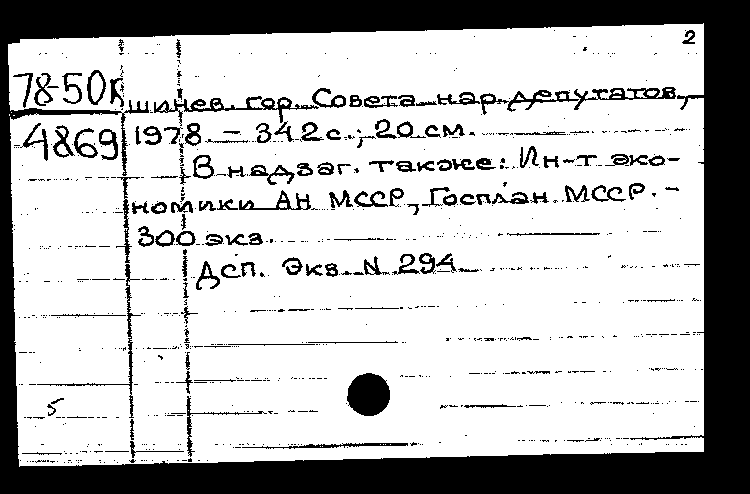 2
78-50к
шинев. гор. Совета нар. депутатов,
4869
1978. – 342 с.; 20 см.
В надзаг. также: Ин-т эко-
номики АН МССР, Госплан МССР. –
300 экз.
Дсп. Экз. N 294
5